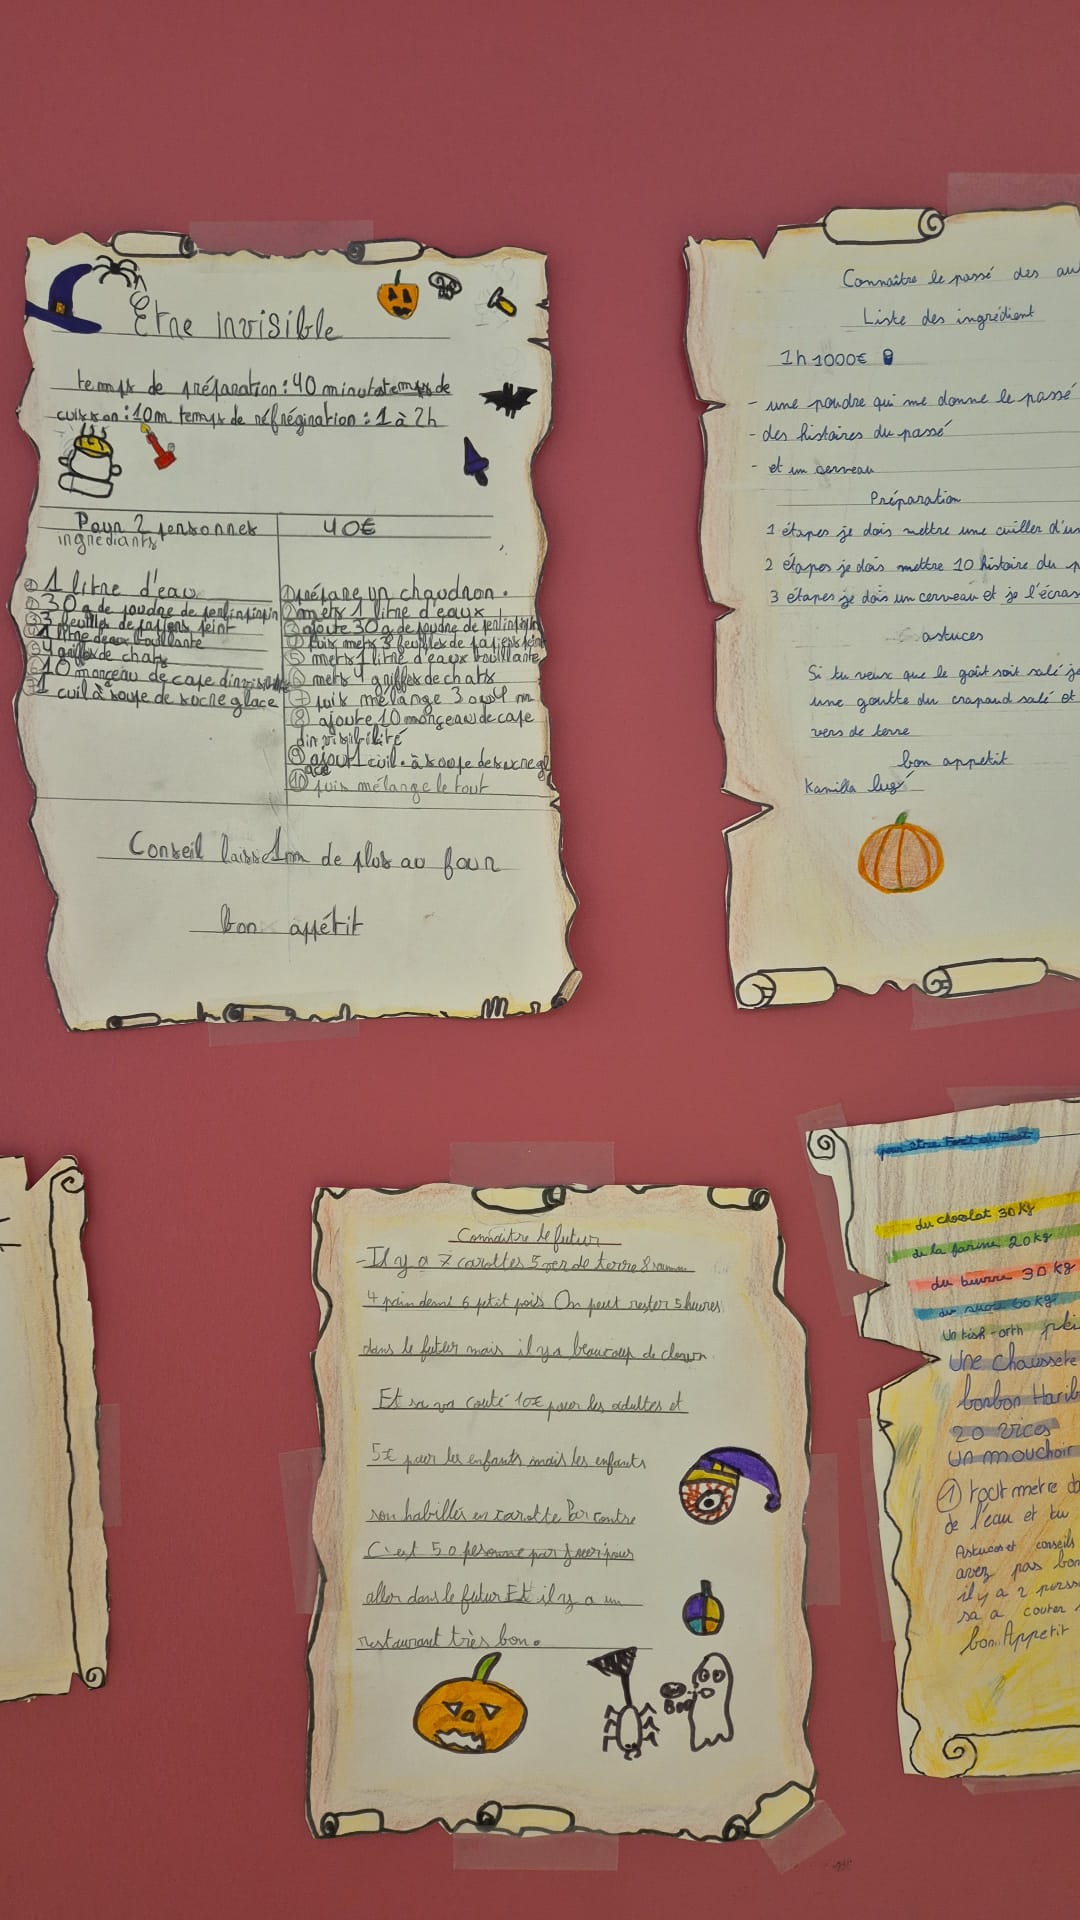 Etre invisible
temps de préparation : 40 minutes temps de
cuisson : 10m temps de réfrégiration : 1 à 2h
Pour 2 personnes
ingrédiants
40€
① 1 litre d'eau
② 30 g de poudre de perlinpinpin
③ 3 feuilles de papiers peint
④ 1 litre deaux bouillante
⑤ 4 griffes de chats
⑥ 10 morceau de cape dinvisibilité
⑦ 1 cuil à soupe de sucre glace
① prépare un chaudron.
② mets 1 litre d'eaux
③ ajoute 30 g de poudre de perlinpinpin
④ puis mets 3 feuilles de papiers peint
⑤ mets 1 litre d'eaux bouillante
⑥ mets 4 griffes de chats
⑦ puis mélange 3 ou 4 mn
⑧ ajoute 10 morçeau de cape
dinvisibilité
⑨ ajout 1 cuil. à soupe de sucre gl
ace
⑩ puis mélange le tout
Conseil laisse 1mn de plus au four
bon appétit
Connaître le passé des au
Liste des ingrédient
1h 1000€
- une poudre qui me donne le passé
- des histoires du passé
- et un cerveau
Préparation
1 étapes je dois mettre une cuiller d'un
2 étapes je dois mettre 10 histoire du p
3 étapes je dois un cerveau et je l'écras
astuces
Si tu veux que le goût soit salé je
une goutte du crapaud salé et
vers de terre
bon appetit
Kamilla
Connaitre le futur
- Il y a 7 carottes 5 ver de terre 8
4 pain demi 6 petit pois On peut rester 5 heures
dans le futur mais il y a beaucoup de clown
Et sa va couté 10€ pour les adultes et
5€ pour les enfants mais les enfants
son habillés en carotte Par contre
C'est 50 personne par jour pour
aller dans le futur Et il y a un
restaurant très bon.
Boo
pour être
du chocolat 30 kg
de la farine 20 kg
du beurre 30 kg
du sucre 60 kg
Un tish-orth plei
Une chaussete
bonbon Harib
20 vices
un mouchoir
① tout metre da
de l'eau et tu
Astuces et conseils
avez pas bon
il y a 2 perss
sa a couter
bon Appetit